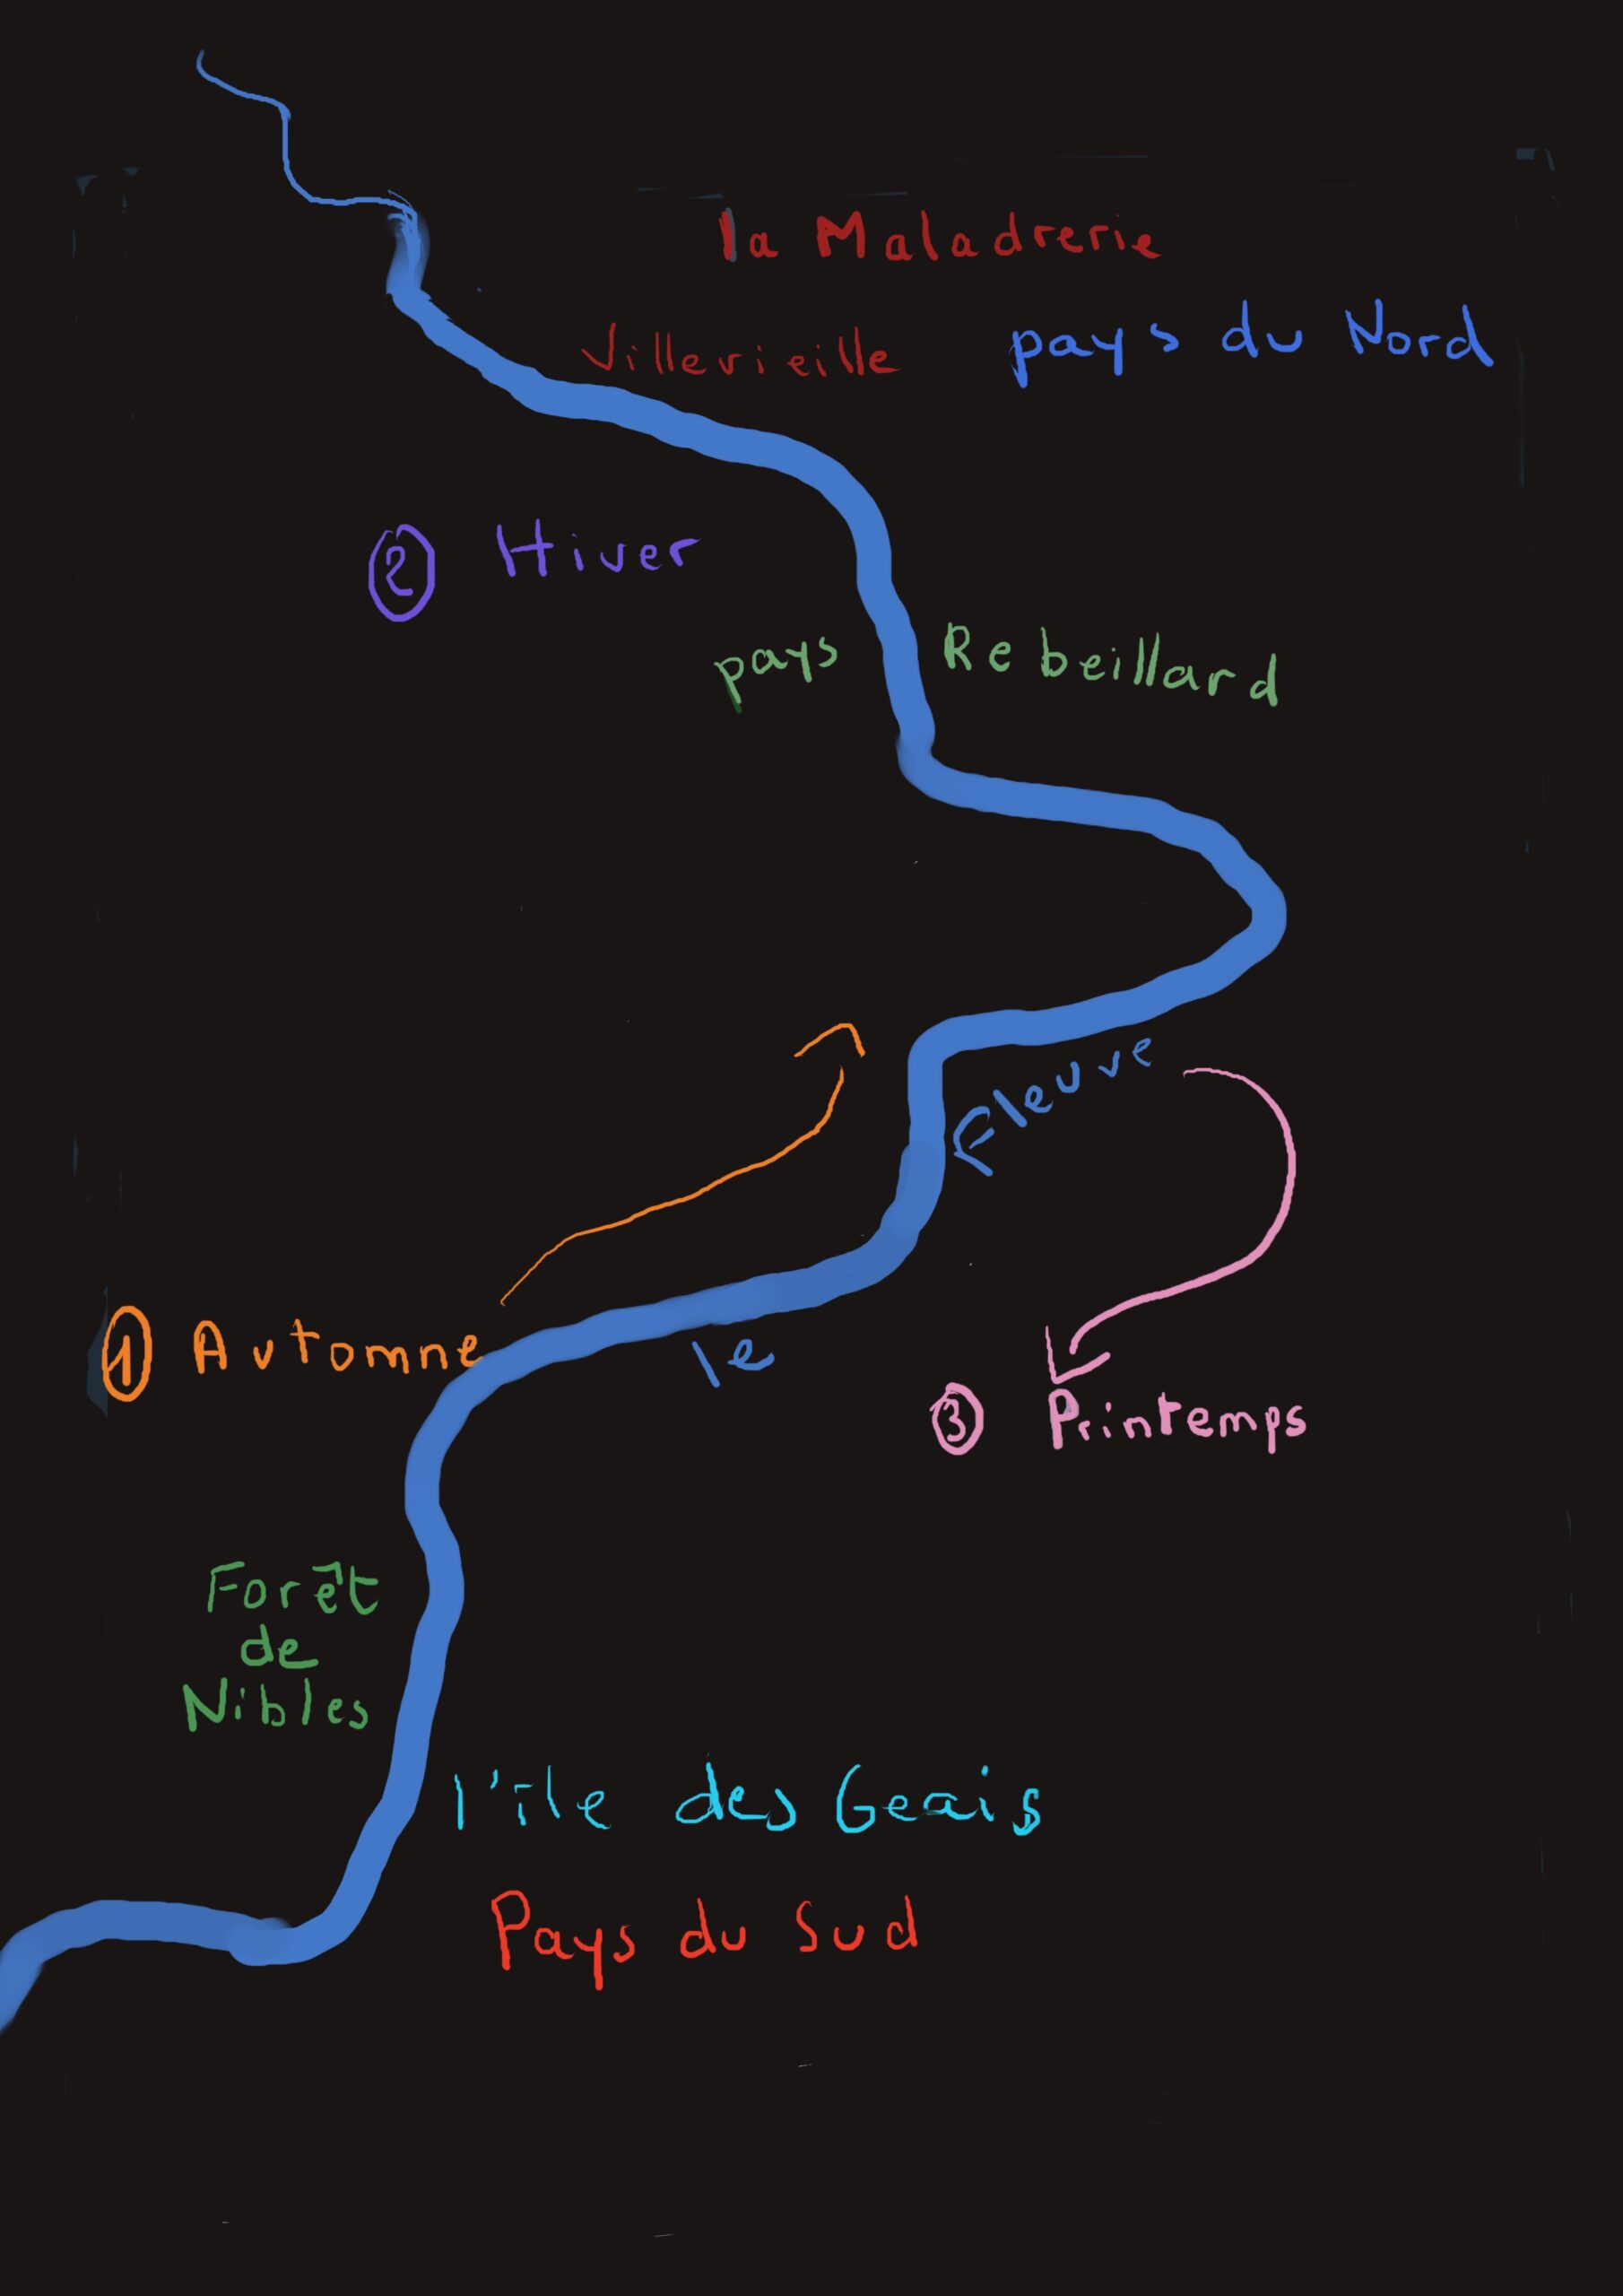 la Maladrerie
Villevieille
pays du Nord
② Hiver
pays Rebeillard
le Fleuve
① Automne
③ Printemps
Forêt
de
Nibles
l'île des Geais
Pays du Sud